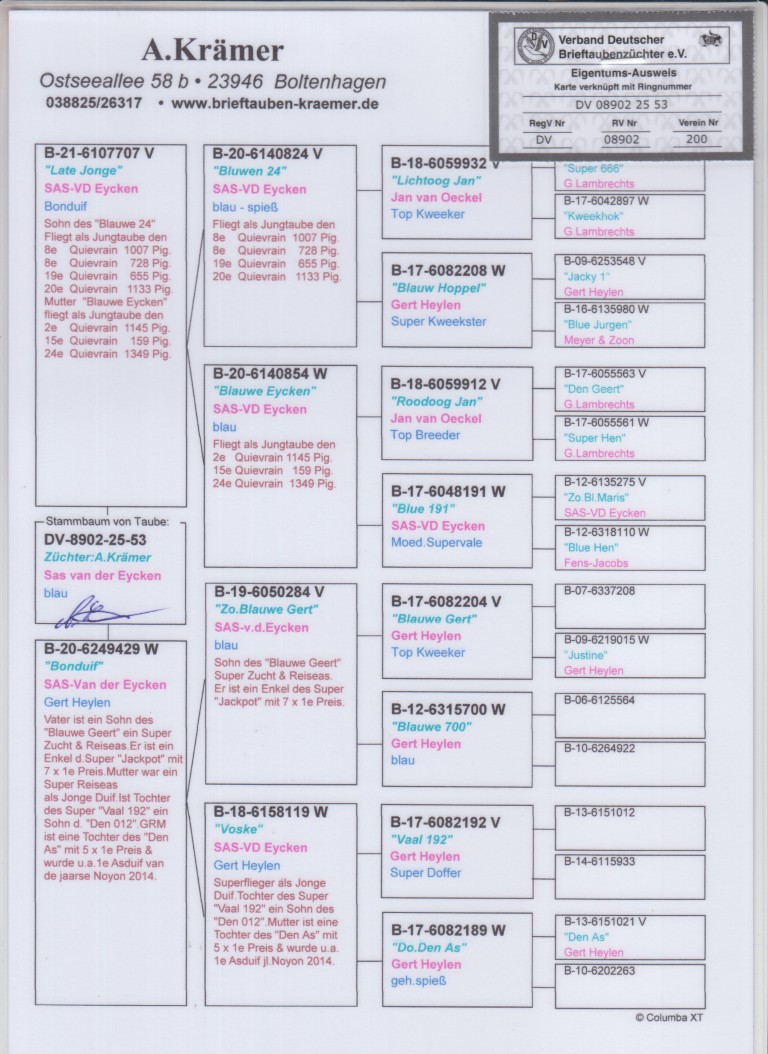 A.Krämer
Ostseeallee 58 b • 23946 Boltenhagen
038825/26317 • www.brieftauben-kraemer.de
Verband Deutscher
Brieftaubenzüchter e.V.
Eigentums-Ausweis
Karte verknüpft mit Ringnummer
DV 08902 25 53
RegV Nr RV Nr Verein Nr
DV 08902 200
B-21-6107707 V
"Late Jonge"
SAS-VD Eycken
Bonduif
Sohn des "Blauwe 24"
Fliegt als Jungtaube den
8e Quievrain 1007 Pig.
8e Quievrain 728 Pig.
19e Quievrain 655 Pig.
20e Quievrain 1133 Pig.
Mutter "Blauwe Eycken"
fliegt als Jungtaube den
2e Quievrain 1145 Pig.
15e Quievrain 159 Pig.
24e Quievrain 1349 Pig.
Stammbaum von Taube:
DV-8902-25-53
Züchter:A.Krämer
Sas van der Eycken
blau
B-20-6249429 W
"Bonduif"
SAS-Van der Eycken
Gert Heylen
Vater ist ein Sohn des
"Blauwe Geert" ein Super
Zucht & Reiseas.Er ist ein
Enkel d.Super "Jackpot" mit
7 x 1e Preis.Mutter war ein
Super Reiseas
als Jonge Duif.Ist Tochter
des Super "Vaal 192" ein
Sohn d. "Den 012".GRM
ist eine Tochter des "Den
As" mit 5 x 1e Preis &
wurde u.a.1e Asduif van
de jaarse Noyon 2014.
B-20-6140824 V
"Bluwen 24"
SAS-VD Eycken
blau - spieß
Fliegt als Jungtaube den
8e Quievrain 1007 Pig.
8e Quievrain 728 Pig.
19e Quievrain 655 Pig.
20e Quievrain 1133 Pig.
B-20-6140854 W
"Blauwe Eycken"
SAS-VD Eycken
blau
Fliegt als Jungtaube den
2e Quievrain 1145 Pig.
15e Quievrain 159 Pig.
24e Quievrain 1349 Pig.
B-19-6050284 V
"Zo.Blauwe Gert"
SAS-v.d.Eycken
blau
Sohn des "Blauwe Geert"
Super Zucht & Reiseas.
Er ist ein Enkel des Super
"Jackpot" mit 7 x 1e Preis.
B-18-6158119 W
"Voske"
SAS-VD Eycken
Gert Heylen
Superflieger als Jonge
Duif.Tochter des Super
"Vaal 192" ein Sohn des
"Den 012".Mutter ist eine
Tochter des "Den As" mit
5 x 1e Preis & wurde u.a.
1e Asduif jl.Noyon 2014.
B-18-6059932 V
"Lichtoog Jan"
Jan van Oeckel
Top Kweeker
B-17-6082208 W
"Blauw Hoppel"
Gert Heylen
Super Kweekster
B-18-6059912 V
"Roodoog Jan"
Jan van Oeckel
Top Breeder
B-17-6048191 W
"Blue 191"
SAS-VD Eycken
Moed.Supervale
B-17-6082204 V
"Blauwe Gert"
Gert Heylen
Top Kweeker
B-12-6315700 W
"Blauwe 700"
Gert Heylen
blau
B-17-6082192 V
"Vaal 192"
Gert Heylen
Super Doffer
B-17-6082189 W
"Do.Den As"
Gert Heylen
geh.spieß
"Super 666"
G.Lambrechts
B-17-6042897 W
"Kweekhok"
G.Lambrechts
B-09-6253548 V
"Jacky 1"
Gert Heylen
B-16-6135980 W
"Blue Jurgen"
Meyer & Zoon
B-17-6055563 V
"Den Geert"
G.Lambrechts
B-17-6055561 W
"Super Hen"
G.Lambrechts
B-12-6135275 V
"Zo.Bl.Maris"
SAS-VD Eycken
B-12-6318110 W
"Blue Hen"
Fens-Jacobs
B-07-6337208
B-09-6219015 W
"Justine"
Gert Heylen
B-06-6125564
B-10-6264922
B-13-6151012
B-14-6115933
B-13-6151021 V
"Den As"
Gert Heylen
B-10-6202263
© Columba XT